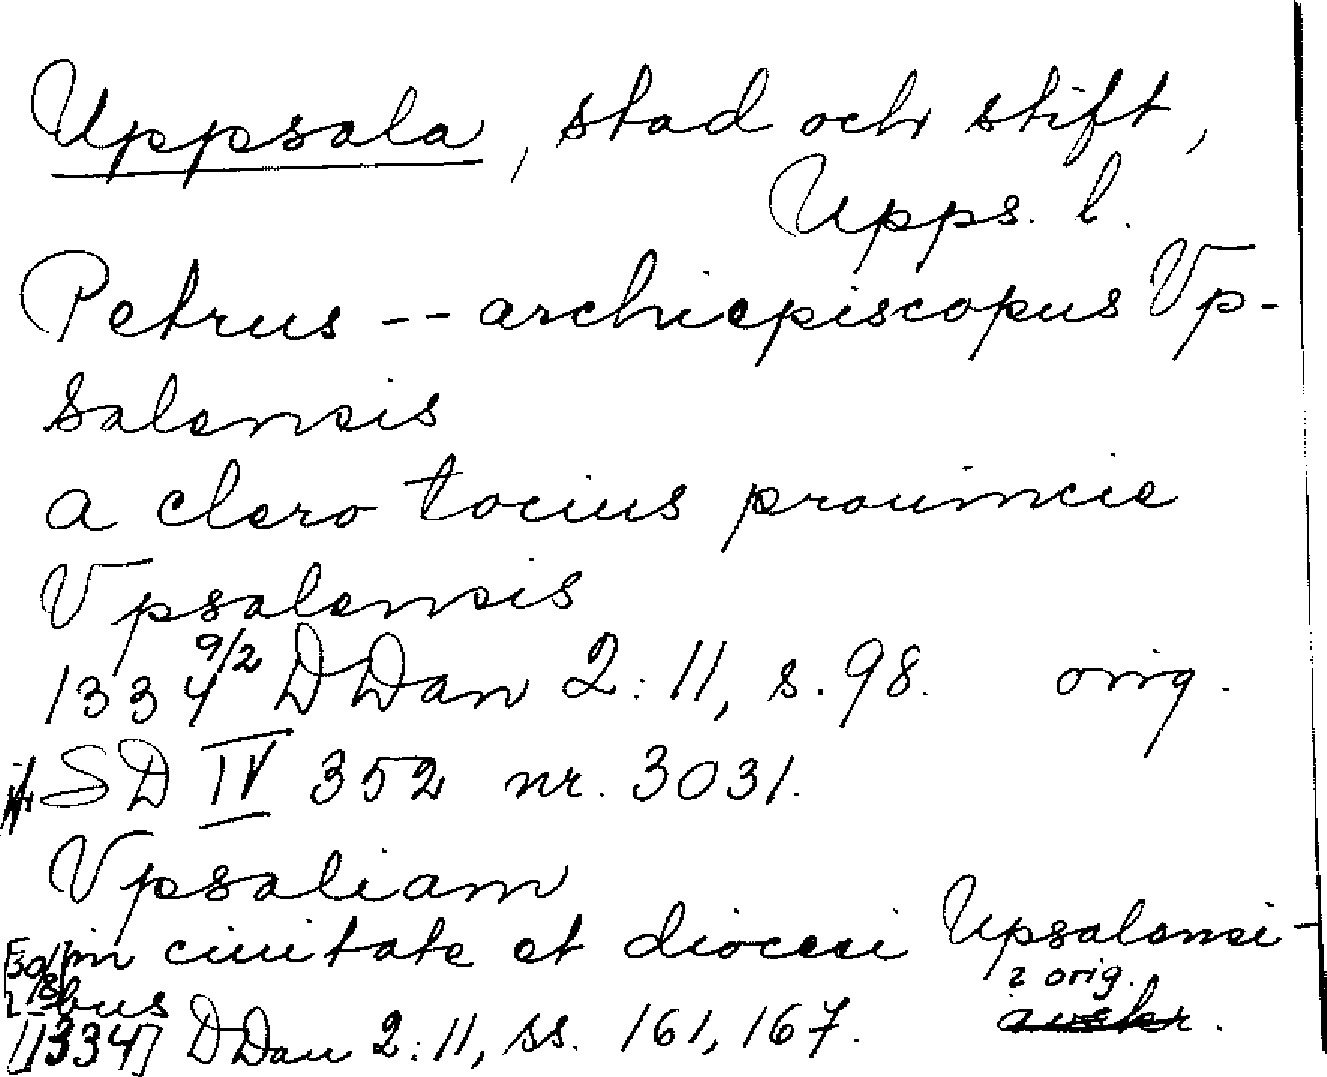 Uppsala, stad och stift,
Upps. l.
Petrus -- archiepiscopus Vp-
salensis
a clero tocius prouincie
Vpsalensis
1334 9/2 DDan 2:11, s. 98. orig.
SD IV 352 nr. 3031.
Vpsaliam
in ciuitate et diocesi Upsalensi-
bus 2 orig.
[1334] DDan 2:11, ss. 161, 167. avskr.